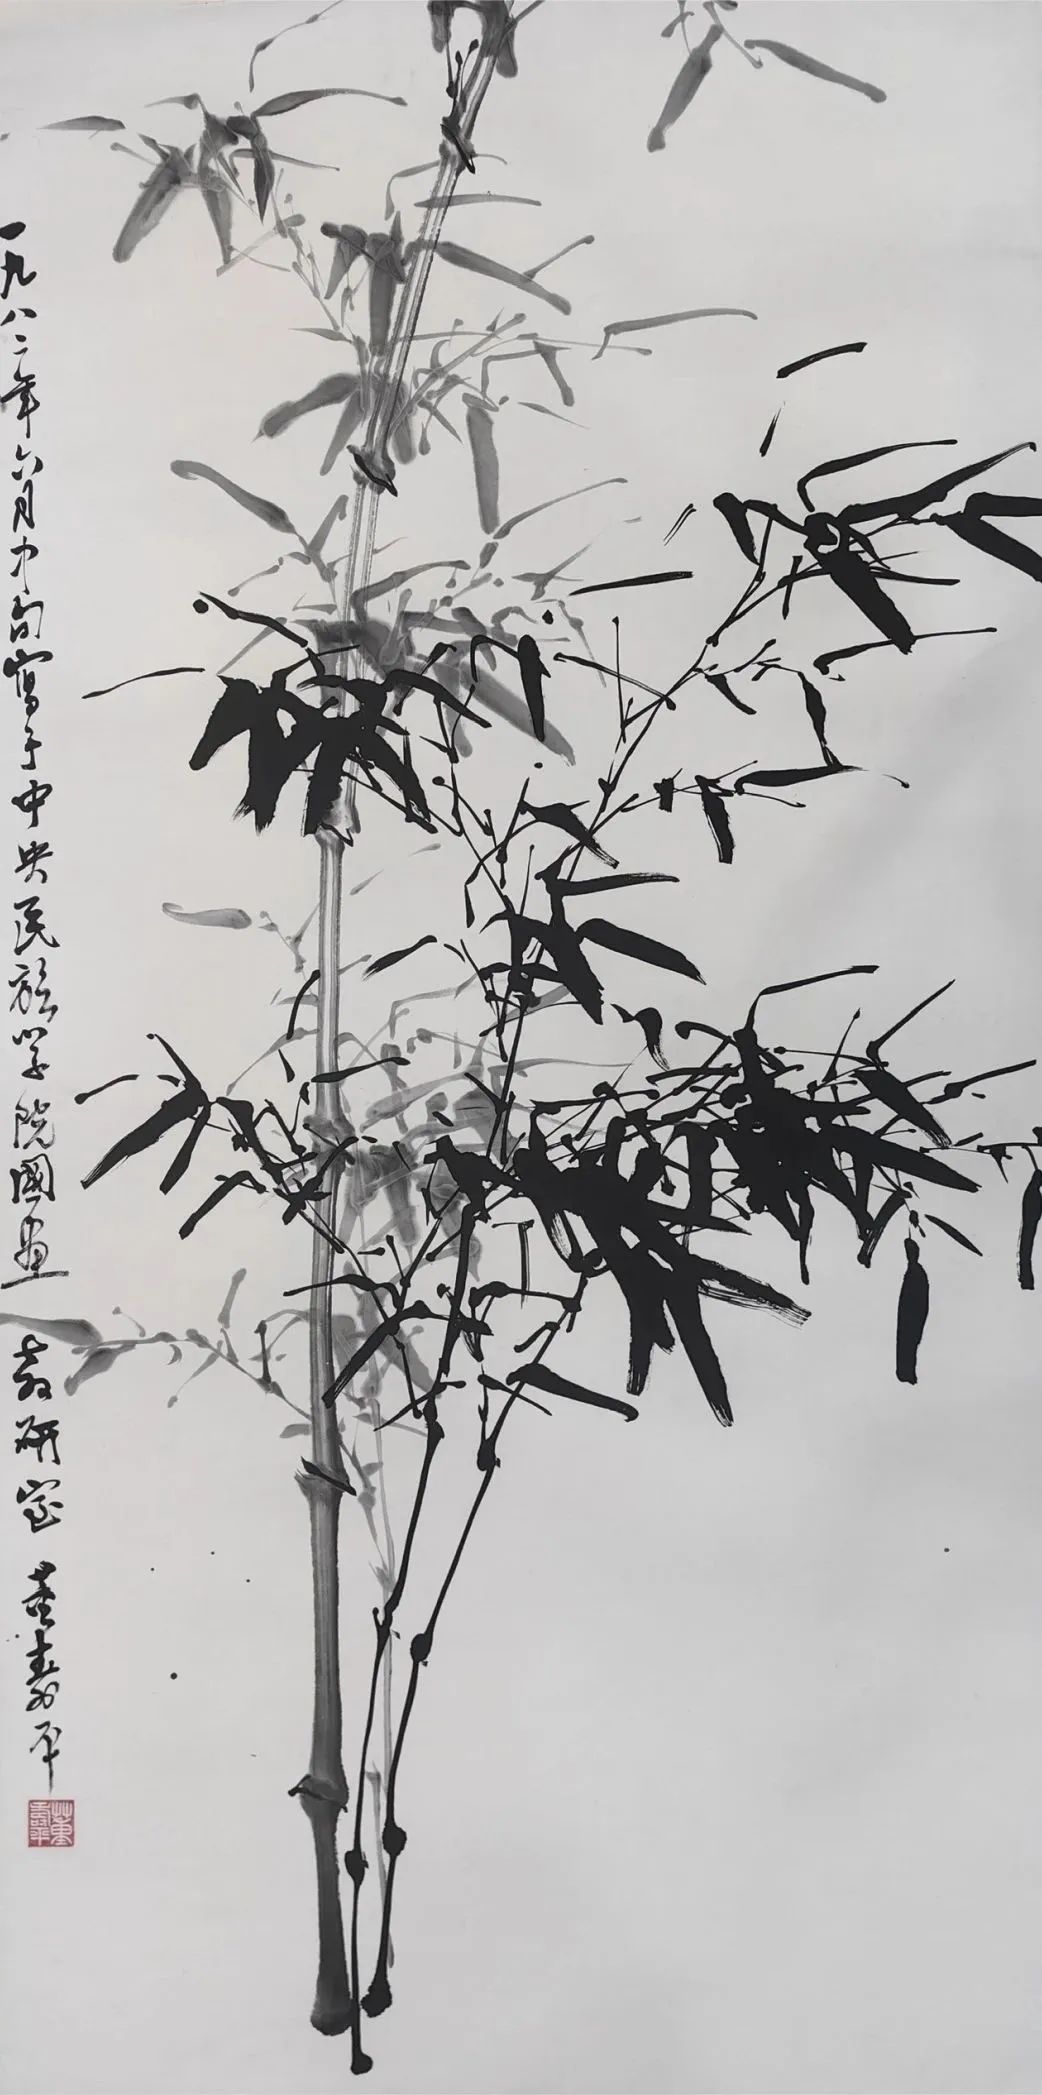 一九八二年六月中旬写于中央民族学院国画教研室 董寿平
董寿平